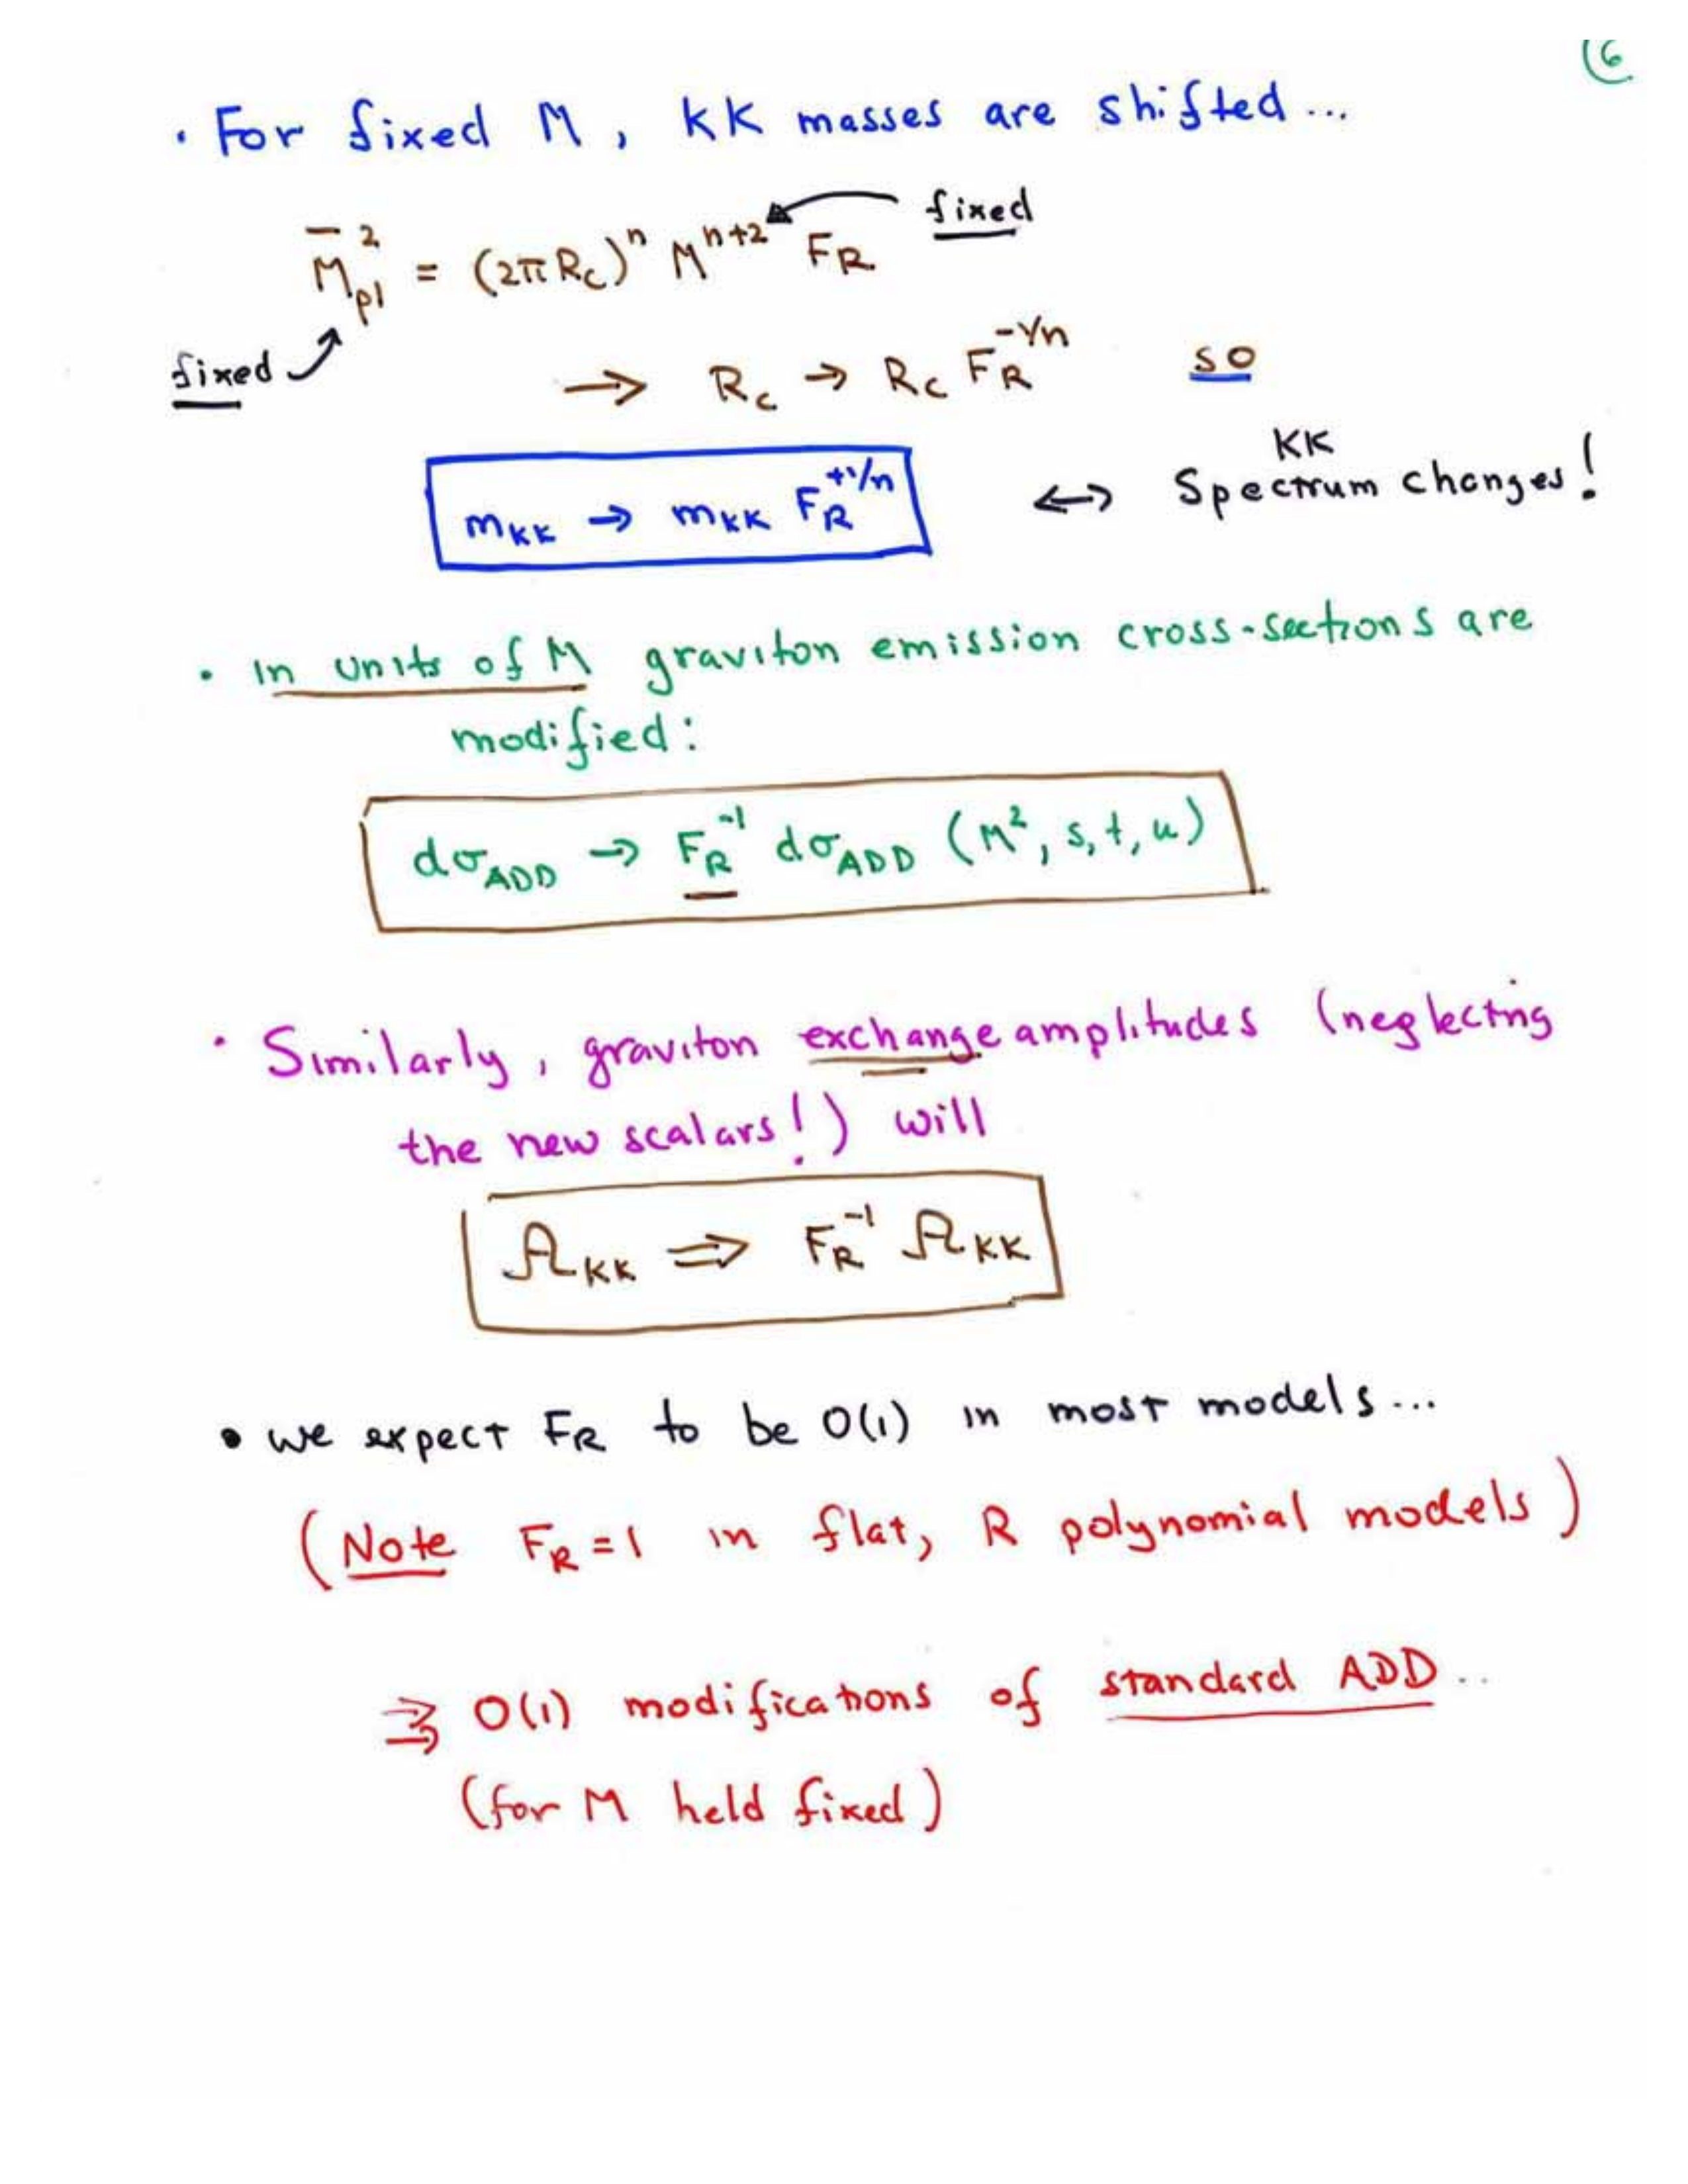 6
• For fixed M, KK masses are shifted...
fixed
M̄²pl = (2πRc)ⁿ Mⁿ⁺² F_R
fixed
→ Rc → Rc F_R^(-1/n) so
KK
m_KK → m_KK F_R^(+1/n) ↔ Spectrum changes!
• In units of M graviton emission cross-sections are
modified:
dσ_ADD → F_R^(-1) dσ_ADD (M², s, t, u)
• Similarly, graviton exchange amplitudes (neglecting
the new scalars!) will
A_KK ⇒ F_R^(-1) A_KK
• we expect F_R to be O(1) in most models...
(Note F_R = 1 in flat, R polynomial models)
⇒ O(1) modifications of standard ADD..
(for M held fixed)